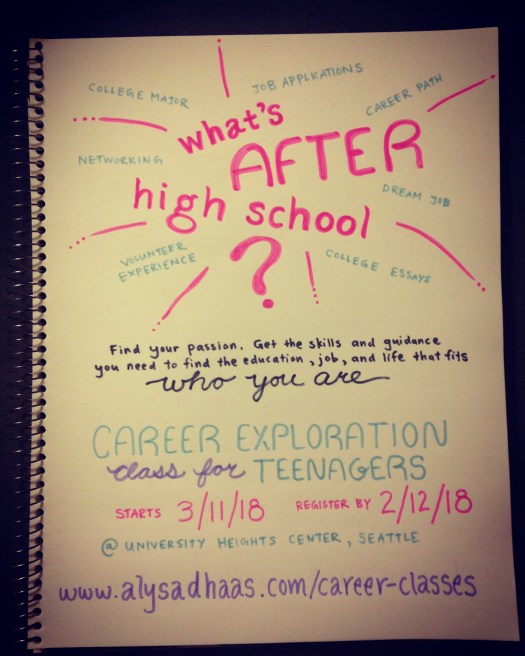 COLLEGE MAJOR
JOB APPLICATIONS
CAREER PATH
what's
AFTER
NETWORKING
high school
DREAM JOB
?
VOLUNTEER
EXPERIENCE
COLLEGE ESSAYS
Find your passion. Get the skills and guidance
you need to find the education, job, and life that fits
who you are
CAREER EXPLORATION
class for TEENAGERS
STARTS 3/11/18 REGISTER BY 2/12/18
@ UNIVERSITY HEIGHTS CENTER, SEATTLE
www.alysadhaas.com/career-classes